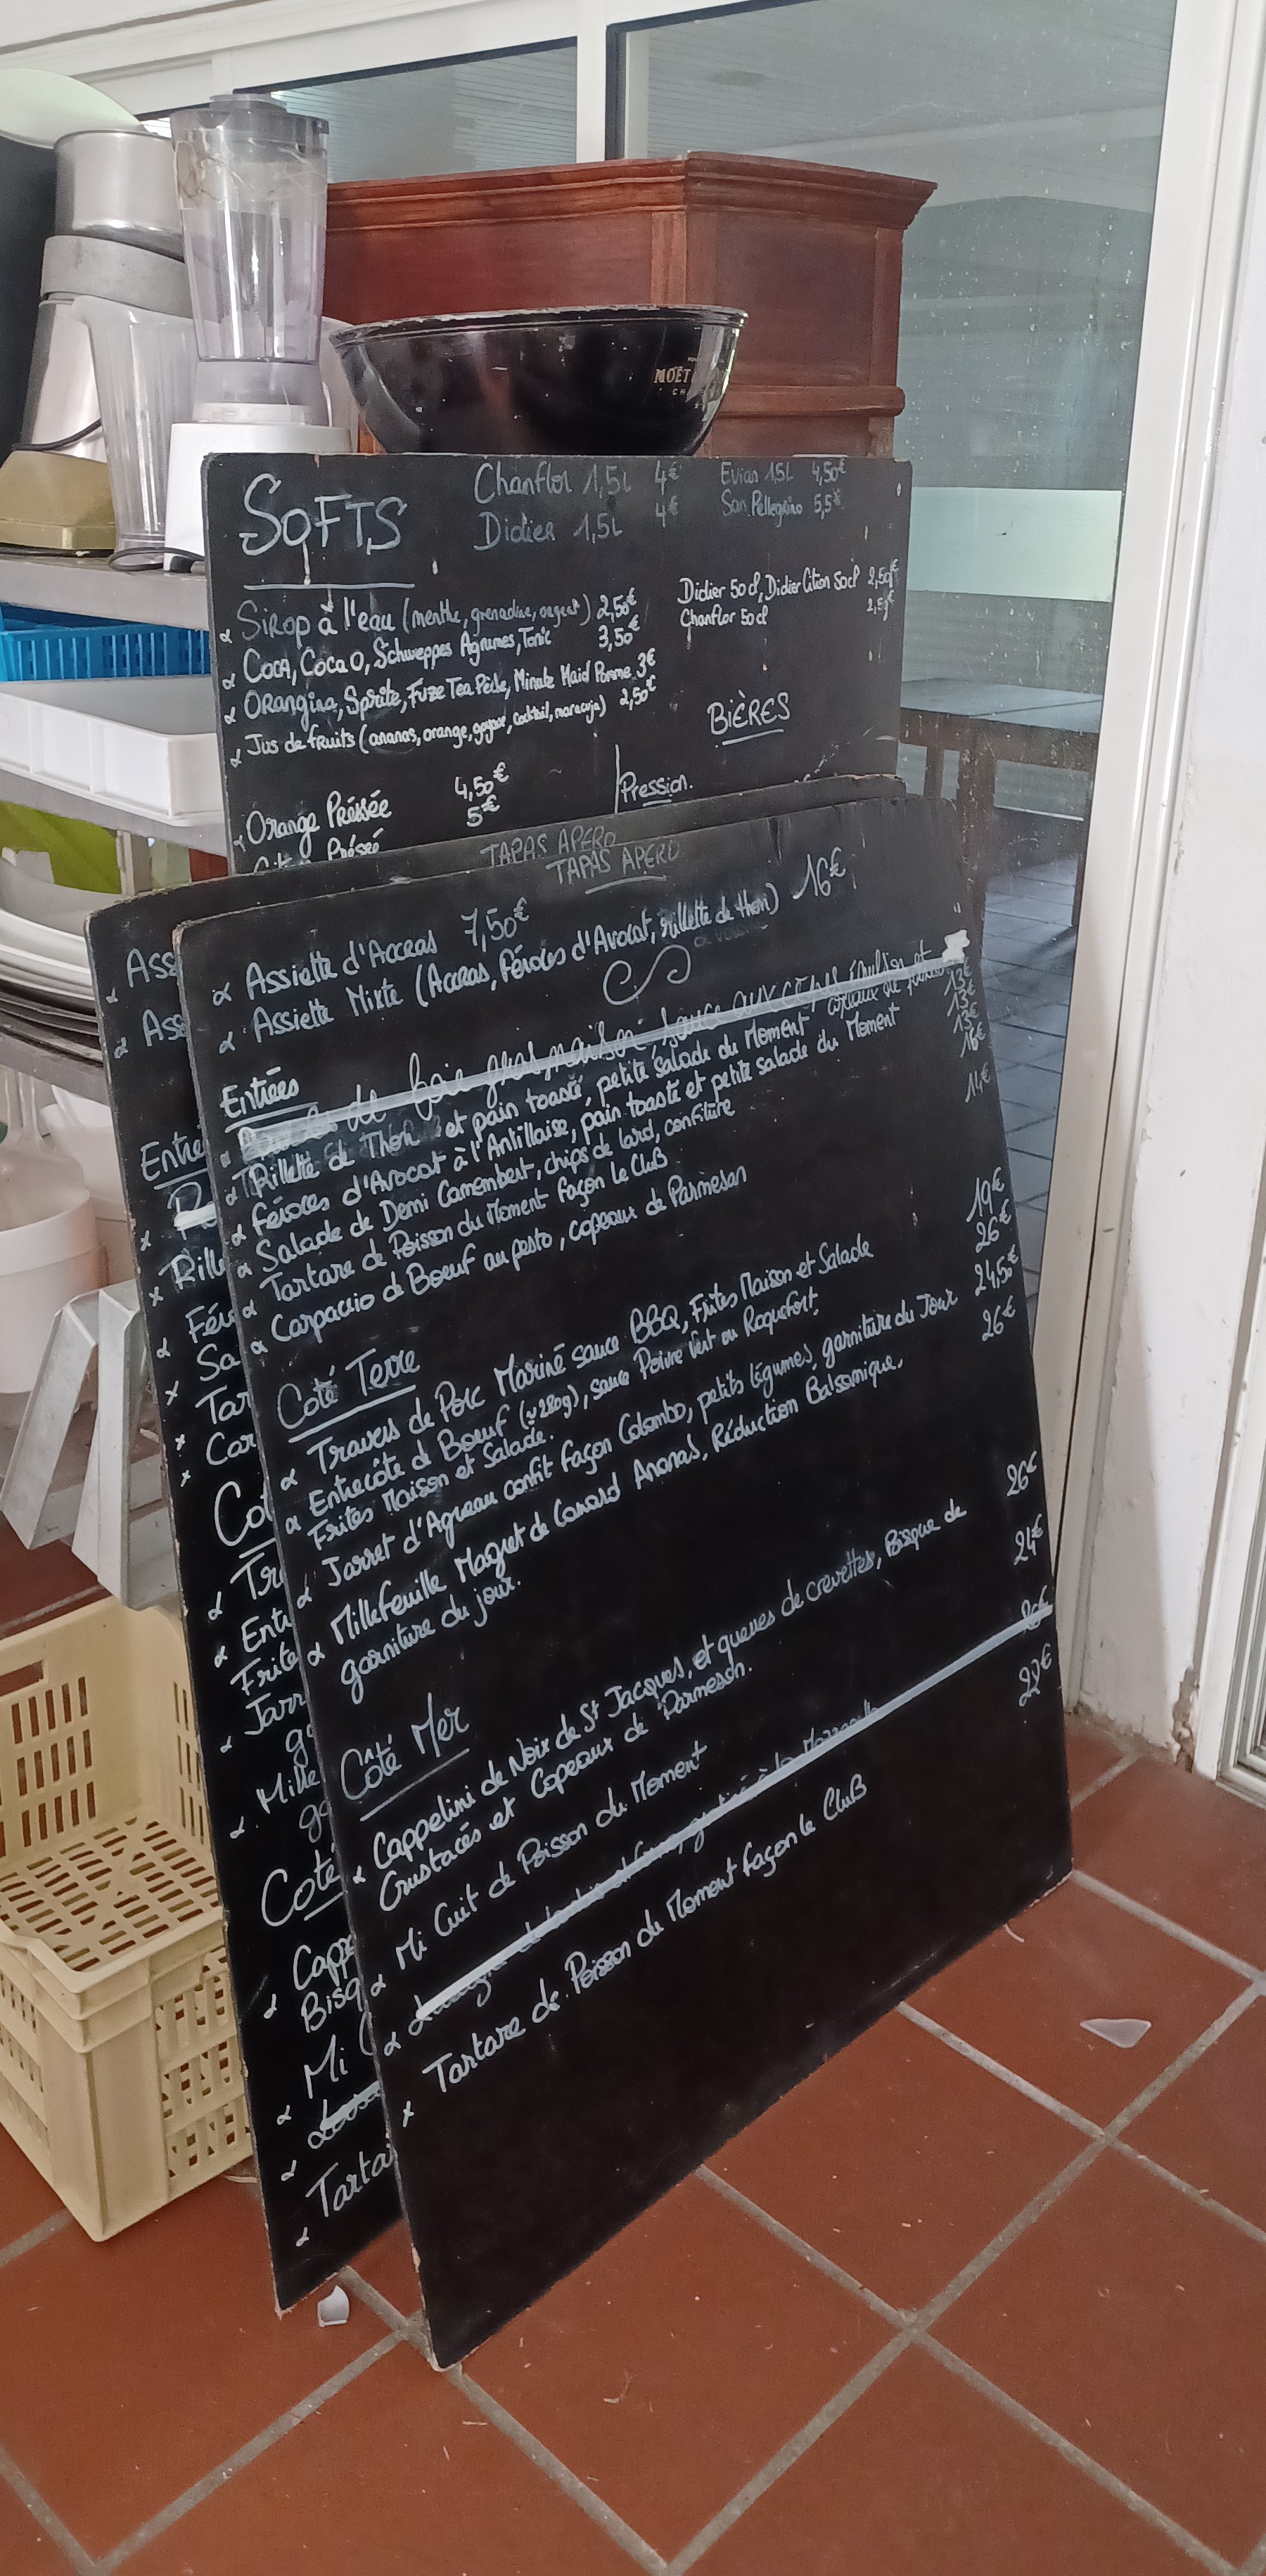 MOËT
SOFTS
Chanflor 1,5L 4€
Didier 1,5L 4€
Evian 1,5L 4,50€
San Pellegrino 5,5€
Sirop à l'eau (menthe, grenadine, orgeat) 2,50€
Coca, Coca O, Schweppes Agrumes, Tonic 3,50€
Orangina, Sprite, Fuze Tea Pêche, Minute Maid Pomme 3€
Jus de fruits (ananas, orange, goyave, cocktail, maracuja) 2,50€
Didier 50cl, Didier Citron 50cl 2,50€
Chanflor 50cl 2,50€
BIÈRES
Pression.
Orange Préssée 4,50€
Préssé 5€
TAPAS APERO
TAPAS APERO
Assiette d'Accras 7,50€
Assiette Mixte (Accras, Féroces d'Avocat, rillette de thon) 16€
Entrées
de foie gras maison, sauce aux cèpes
Rillette de Thon et pain toasté, petite salade du Moment 13€
Féroces d'Avocat à l'Antillaise, pain toasté et petite salade du Moment 13€
Salade de Demi Camembert, chips de lard, confiture 13€
Tartare de Poisson du Moment façon Le CluB 16€
Carpaccio de Boeuf au pesto, copeaux de Parmesan 14€
Coté Terre
Travers de Porc Mariné sauce BBQ, Frites Maison et Salade 19€
Entrecôte de Boeuf (~280g), sauce Poivre Vert ou Roquefort, 26€
Frites Maison et Salade.
Jarret d'Agneau confit façon Colombo, petits légumes, garniture du Jour 24,50€
Millefeuille Magret de Canard Ananas, Réduction Balsamique, 26€
garniture du jour.
Côté Mer
Cappelini de Noix de St Jacques, et queues de crevettes, Bisque de 26€
Crustacés et Copeaux de Parmesan.
Mi Cuit de Poisson du Moment 24€
26€
Tartare de Poisson du Moment façon le CluB 22€
Ass
Ass
Entré
Rille
Féro
Sa
Tar
Car
Cot
Tr
Entr
Frite
Jarr
ga
Mille
ga
Coté
Capp
Bisq
Mi C
Tarta